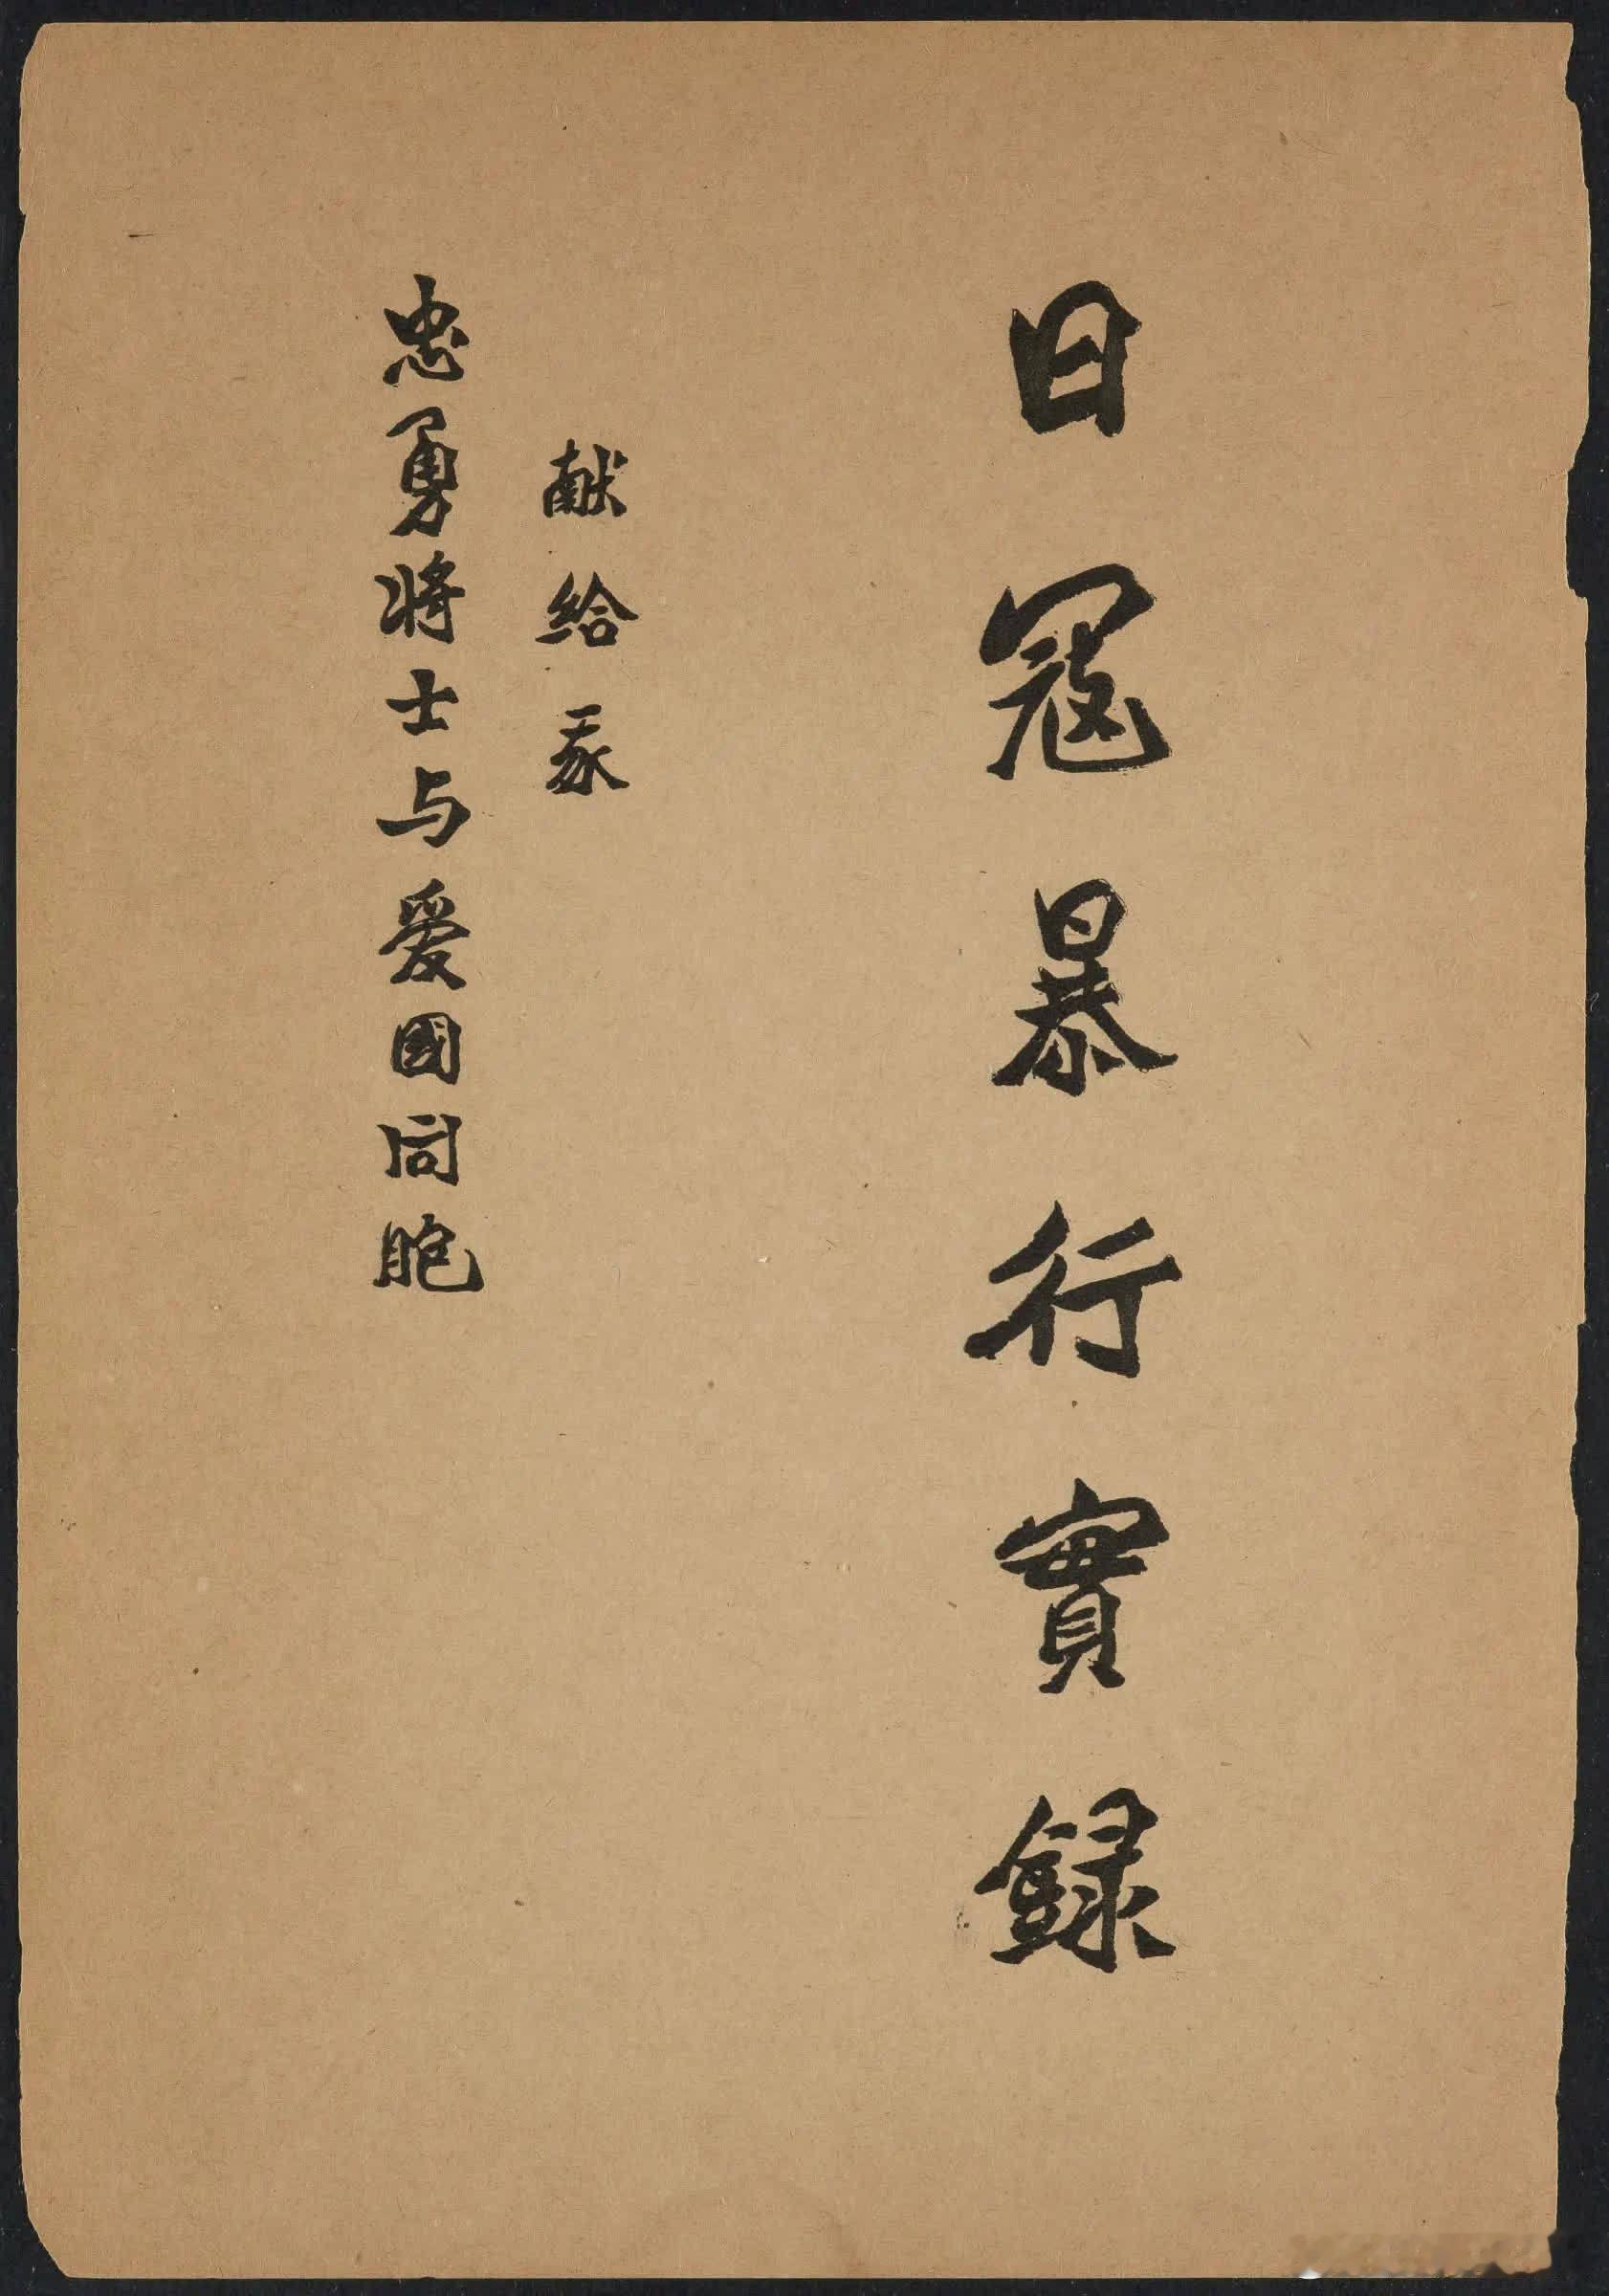 日寇暴行實録
献給我
忠勇将士与爱國同胞